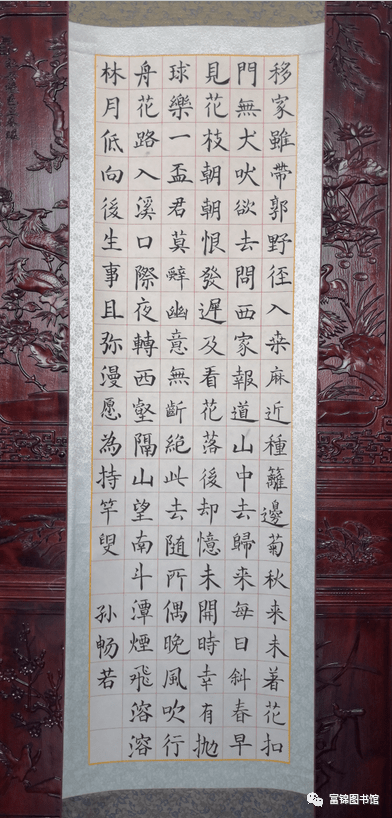 移家雖帶郭野徑入桒麻近種籬邊菊秋来未著花扣
門無犬吠欲去問西家報道山中去歸来每日斜春早
見花枝朝朝恨發遲及看花落後却憶未開時幸有抛
球樂一盃君莫辤幽意無斷絶此去随所偶晚風吹行
舟花路入溪口際夜轉西壑隔山望南斗潭煙飛溶溶
林月低向後生事且弥漫愿為持竿叟 孙畅若
富锦图书馆